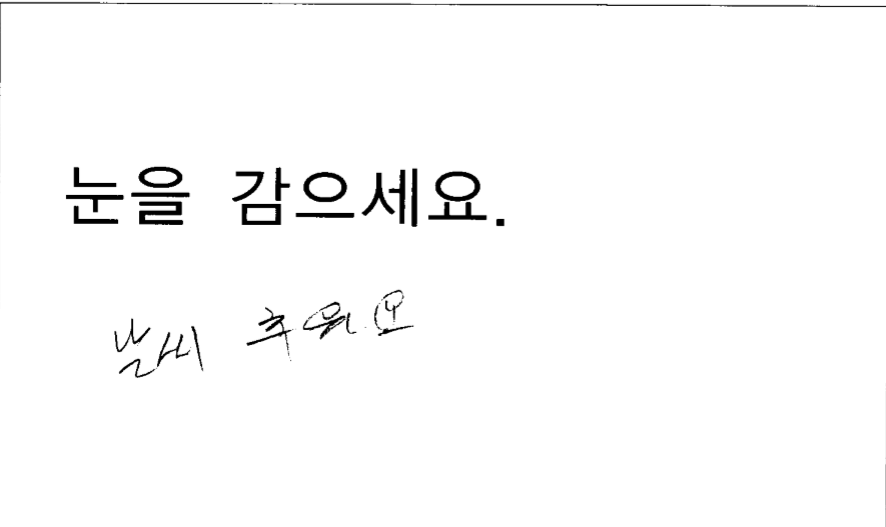 눈을 감으세요.
날씨 추워요